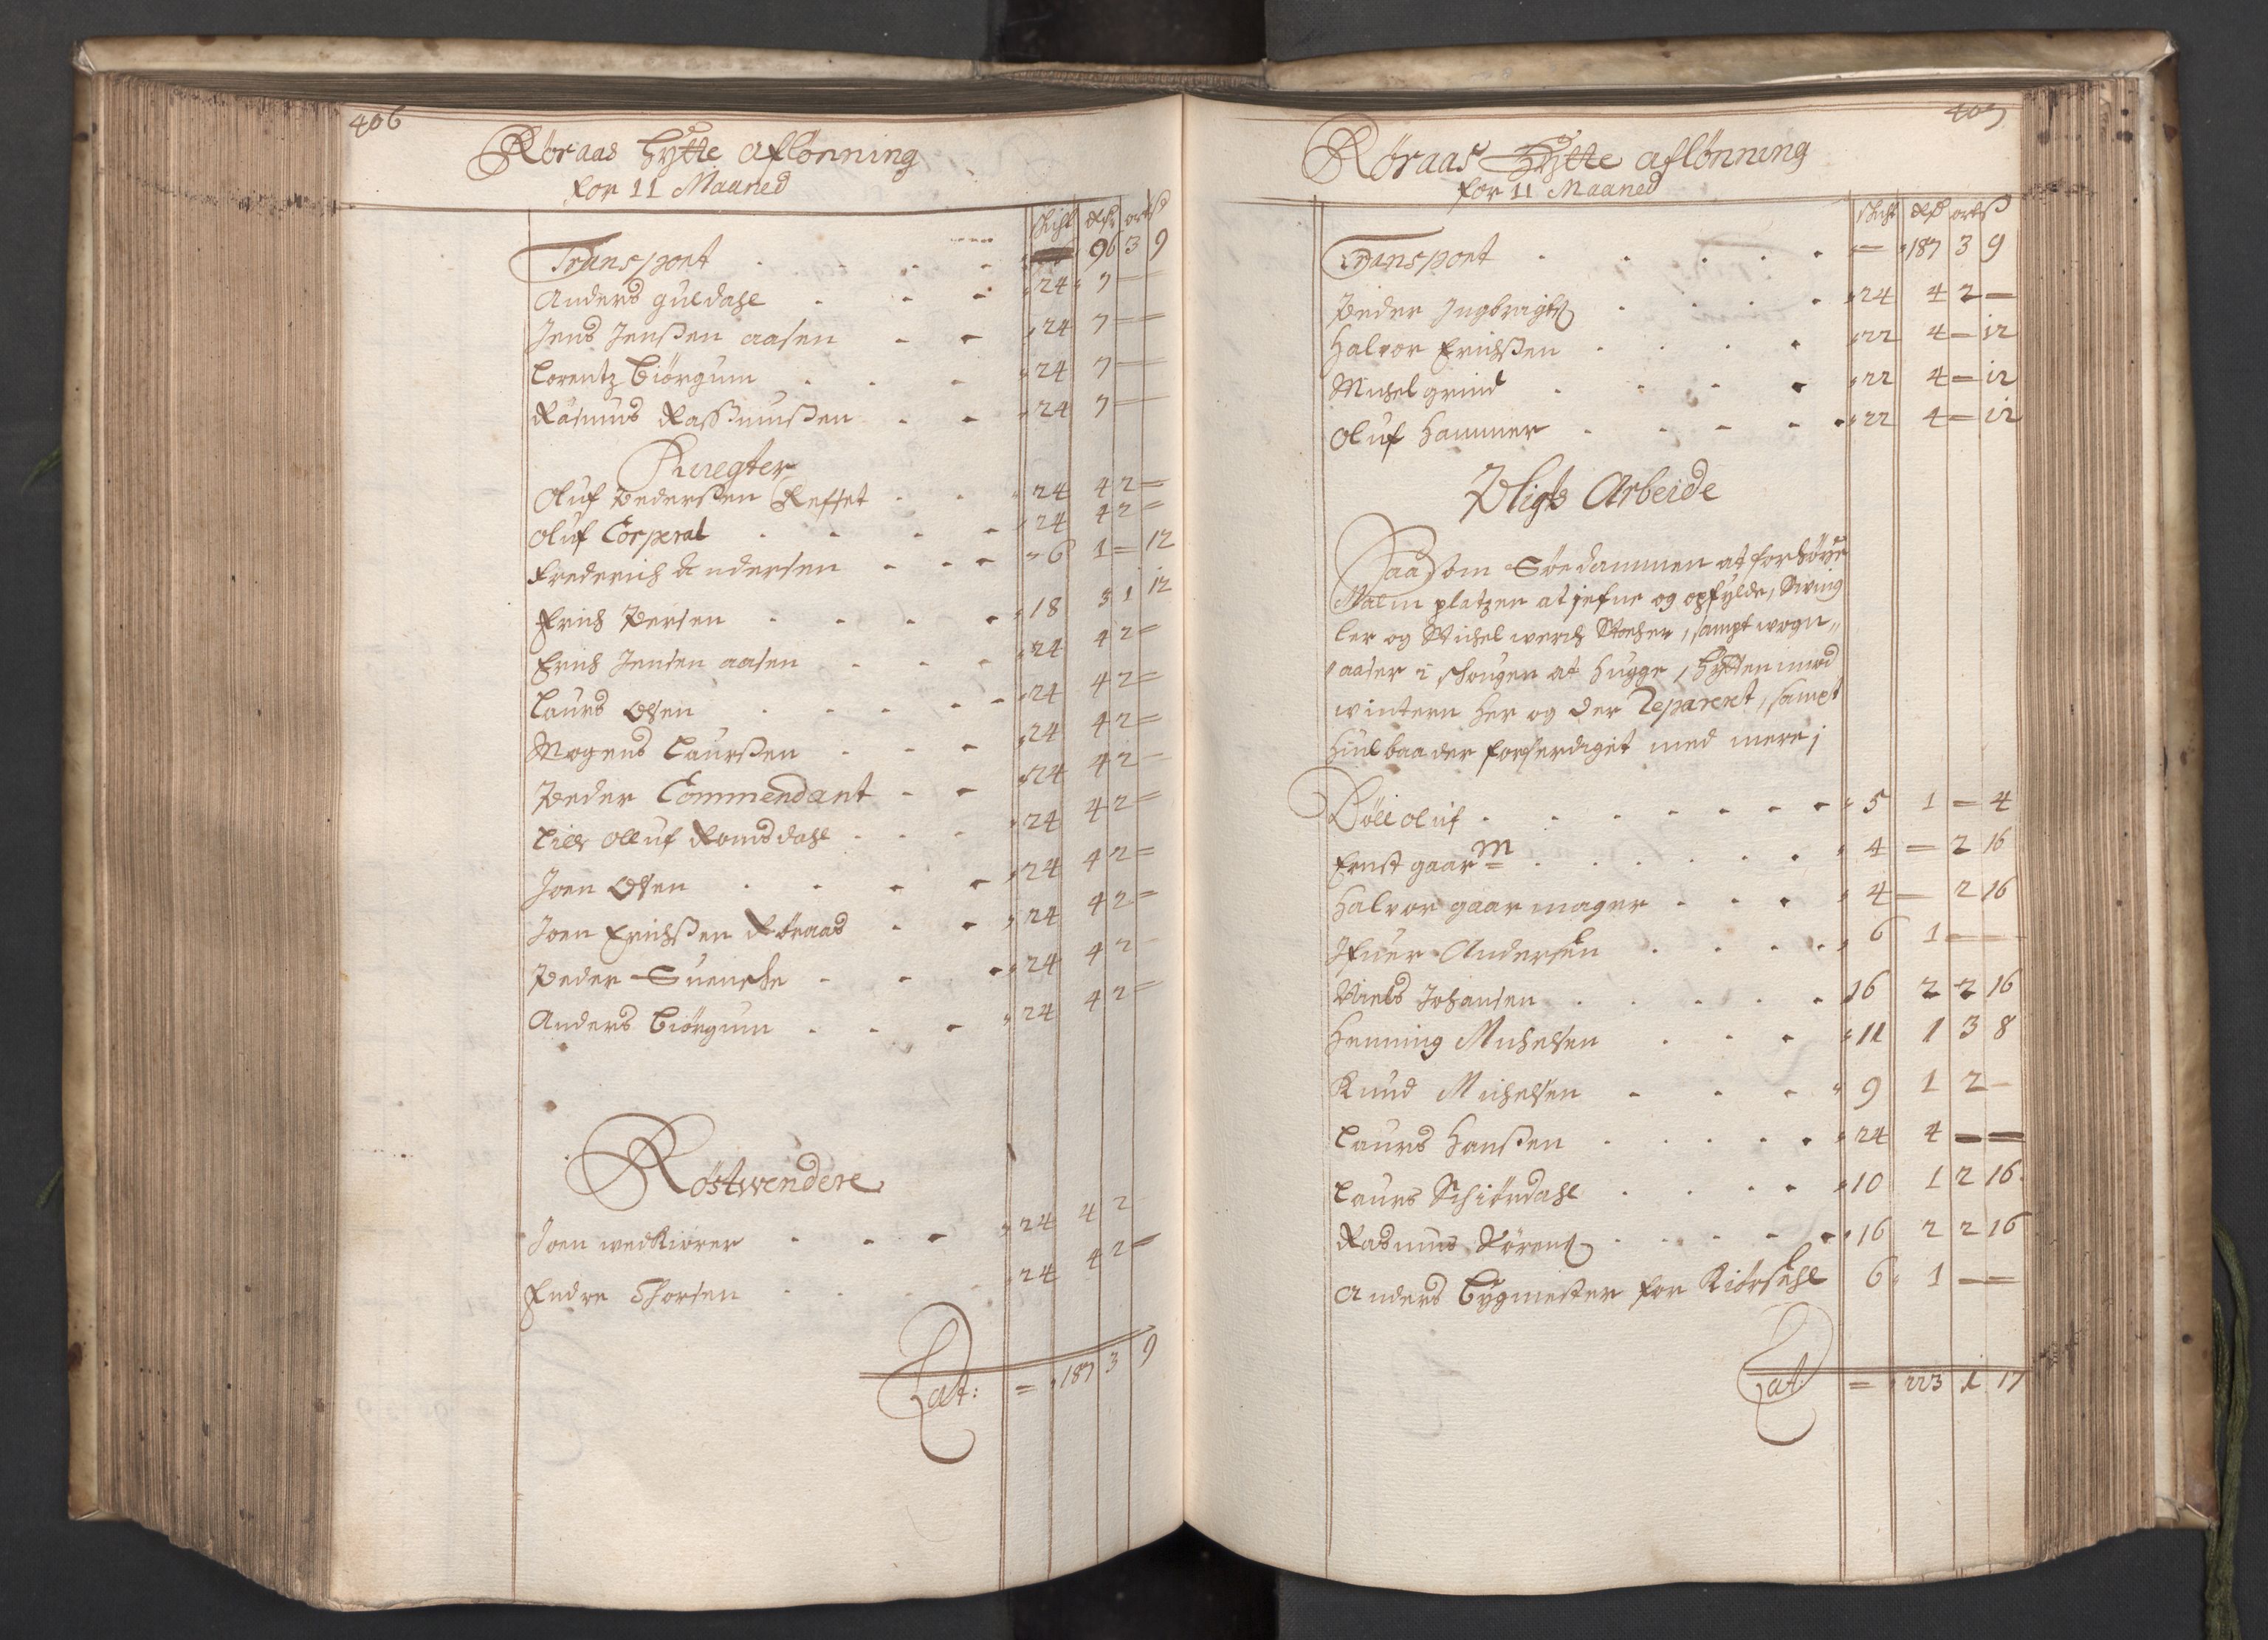 406
Røraas Hytte aflønning
for 11 Maaned
schicht Rdr ort ß
Transport 96 3 9
Anders guldahl 24 7 —
Jens Jenßen aasen 24 7 —
Lorentz Biörgum 24 7 —
Rasmus Rassmußen 24 7 —
Knegter
Oluf Pederßen Reffet 24 4 2 —
Oluf Corperal 24 4 2 —
Frederich Andersen 6 1 — 12
Erich Persen 18 3 1 12
Erich Jensen aasen 24 4 2 —
Laurs Olsen 24 4 2 —
Mogens Laurßen 24 4 2 —
Peder Commendant 24 4 2 —
Lille Olluf Romsdahl 24 4 2 —
Joen Olsen 24 4 2 —
Joen Erichßen Røraas 24 4 2 —
Peder Suensche 24 4 2
Anders Biörgum 24 4 2 —
Röstwendere
Joen wedkiører 24 4 2
Endre Thorsen 24 4 2 —
Lat: — 187 3 9
407
Røraas Hytte aflønning
for 11 Maaned
schicht Rdr ort ß
Transport — 187 3 9
Peder Ingbrigts 24 4 2 —
Halvor Erichßen 22 4 — 12
Michel grind 22 4 — 12
Oluf Hammer 22 4 — 12
Pligts Arbeide
Saasom Söedammen at forhöye
Malm platzen at jefne og opfylde, Sving
ler og Stichel werch Stocher, sampt wogn„
aaser i schougen at hugge, Hytten imod
wintern her og der Reparert, sampt
Hiulbaader forferdiget med mere;
Böll oluf 5 1 — 4
Ernst gaarm 4 — 2 16
Halvor gaarmager 4 — 2 16
Ifuer Andersen 6 1 —
Niels Johansen 16 2 2 16
Henning Michelsen 11 1 3 8
Knud Michelsen 9 1 2 —
Laurs Hanßen 24 4 — —
Laurs Schiördahl 10 1 2 16
Rasmus Sörens 16 2 2 16
Anders Bygmester for Kiörsehl 6 1 — —
Lat — 223 1 17